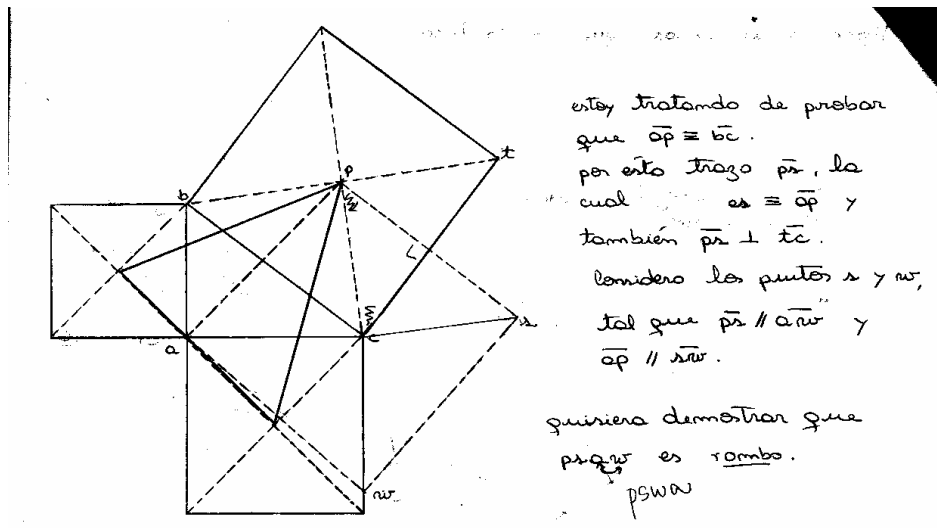 b
p
t
a
c
s
w
estoy tratando de probar
que ap ≅ bc.
por esto trazo ps, la
cual es ≅ ap y
también ps ⊥ tc.
Considero los puntos s y w,
tal que ps // aw y
ap // sw.
quisiera demostrar que
psaw es rombo.
pswa